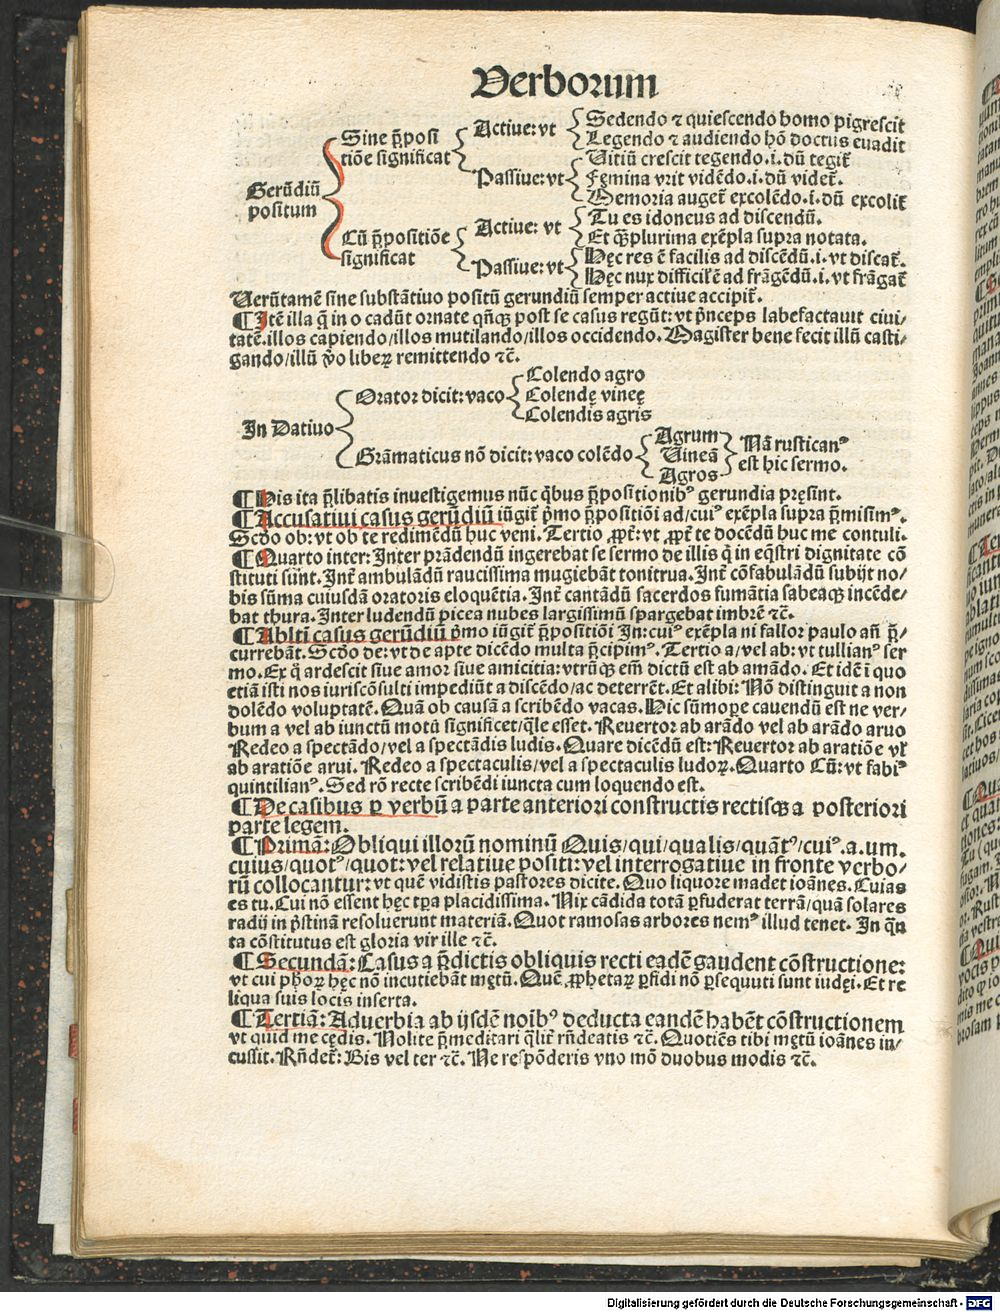 Verborum
Gerūdiū
positum
Sine p̄posi
tiōe significat
Actiue: vt
Sedendo ⁊ quiescendo homo pigrescit
Legendo ⁊ audiendo hō doctus euadit
Passiue: vt
Uitiū crescit tegendo .i. dū tegit᷑
Femina vrit vidēdo .i. dū videt᷑.
Memoria auget᷑ excolēdo .i. dū excolit᷑
Cū p̄positiōe
significat
Actiue: vt
Tu es idoneus ad discendū.
Et q̄ꝫplurima exēpla supra notata.
Passiue: vt
Hęc res ē facilis ad discēdū .i. vt discat᷑.
Hęc nux difficil'ē ad frāgēdū .i. vt frāgat᷑
Uerūtamē sine substātiuo positū gerundiū semper actiue accipit᷑.
¶ Itē illa q̄ in o cadūt ornate qn̄qꝫ post se casus regūt: vt p̄nceps labefactauit ciui/
tatē. illos capiendo/illos mutilando/illos occidendo. Magister bene fecit illū casti/
gando/illū v̄o libeꝝ remittendo ⁊c̄.
In Datiuo
Orator dicit: vaco
Colendo agro
Colendę vineę
Colendis agris
Grāmaticus nō dicit: vaco colēdo
Agrum
Uineā
Agros
Nā rustican⁹
est hic sermo.
¶ His ita p̄libatis inuestigemus nūc q̇bus p̄positionib⁹ gerundia pręsint.
¶ Accusatiui casus gerūdiū iūgit᷑ p̄mo p̄positiōi ad/cui⁹ exēpla supra p̄misim⁹.
Scd̄o ob: vt ob te redimēdū huc veni. Tertio ꝓpt᷑: vt ꝓpt᷑ te docēdū huc me contuli.
¶ Quarto inter: Inter prādendū ingerebat se sermo de illis q̇ in eq̄stri dignitate cō
stituti sunt. Int᷑ ambulādū raucissima mugiebāt tonitrua. Int᷑ cōfabulādū subijt no/
bis sūma cuiusdā oratoris eloquētia. Int᷑ cantādū sacerdos fumātia sabeaqꝫ incēde/
bat thura. Inter ludendū picea nubes largissimū spargebat imbrē ⁊c̄.
¶ Ablt̄i casus gerūdiū p̄mo iūgit᷑ p̄positiōi In: cui⁹ exēpla ni fallor paulo añ p̄/
currebāt. Scd̄o de: vt de apte dicēdo multa p̄cipim⁹. Tertio a/vel ab: vt tullian⁹ ser
mo. Ex q̇ ardescit siue amor siue amicitia: vtrūqꝫ em̄ dictū est ab amādo. Et idē ī quo
etiā isti nos iuriscōsulti impediūt a discēdo/ac deterrēt. Et alibi: Nō distinguit a non
dolēdo voluptatē. Quā ob causā a scribēdo vacas. Hic sūmoꝑe cauendū est ne ver/
bum a vel ab iunctū motū significet/q̄le esset. Reuertor ab arādo vel ab arādo aruo
Redeo a spectādo/vel a spectādis ludis. Quare dicēdū est: Reuertor ab aratiōe vł
ab aratiōe arui. Redeo a spectaculis/vel a spectaculis ludoꝝ. Quarto Cū: vt fabi⁹
quintilian⁹. Sed rō recte scribēdi iuncta cum loquendo est.
¶ De casibus ꝑ verbū a parte anteriori constructis rectisqꝫ a posteriori
parte legem.
¶ Primā: Obliqui illorū nominū Quis/qui/qualis/quāt⁹/cui⁹.a.um.
cuius/quot⁹/quot: vel relatiue positi: vel interrogatiue in fronte verbo/
rū collocantur: vt quē vidistis pastores dicite. Quo liquore madet ioānes. Cuias
es tu. Cui nō essent hęc tꝑa placidissima. Nix cādida totā ꝑfuderat terrā/quā solares
radij in p̄stinā resoluerunt materiā. Quot ramosas arbores nem⁹ illud tenet. In q̄n
ta cōstitutus est gloria vir ille ⁊c̄.
¶ Secundā: Casus a p̄dictis obliquis recti eadē gaudent cōstructione:
vt cui phōꝝ hęc nō incutiebāt mętū. Quē ꝓphetaꝝ ꝑfidi nō ꝑsequuti sunt iudęi. Et re
liqua suis locis inserta.
¶ Tertiā: Aduerbia ab ijsdē noib⁹ deducta eandē habēt cōstructionem
vt quid me cędis. Nolite p̄meditari q̄lit᷑ rn̄deatis ⁊c̄. Quotiēs tibi mętū ioānes in/
cussit. Rn̄det᷑: Bis vel ter ⁊c̄. Ne respōderis vno mō duobus modis ⁊c̄.
Digitalisierung gefördert durch die Deutsche Forschungsgemeinschaft - DFG